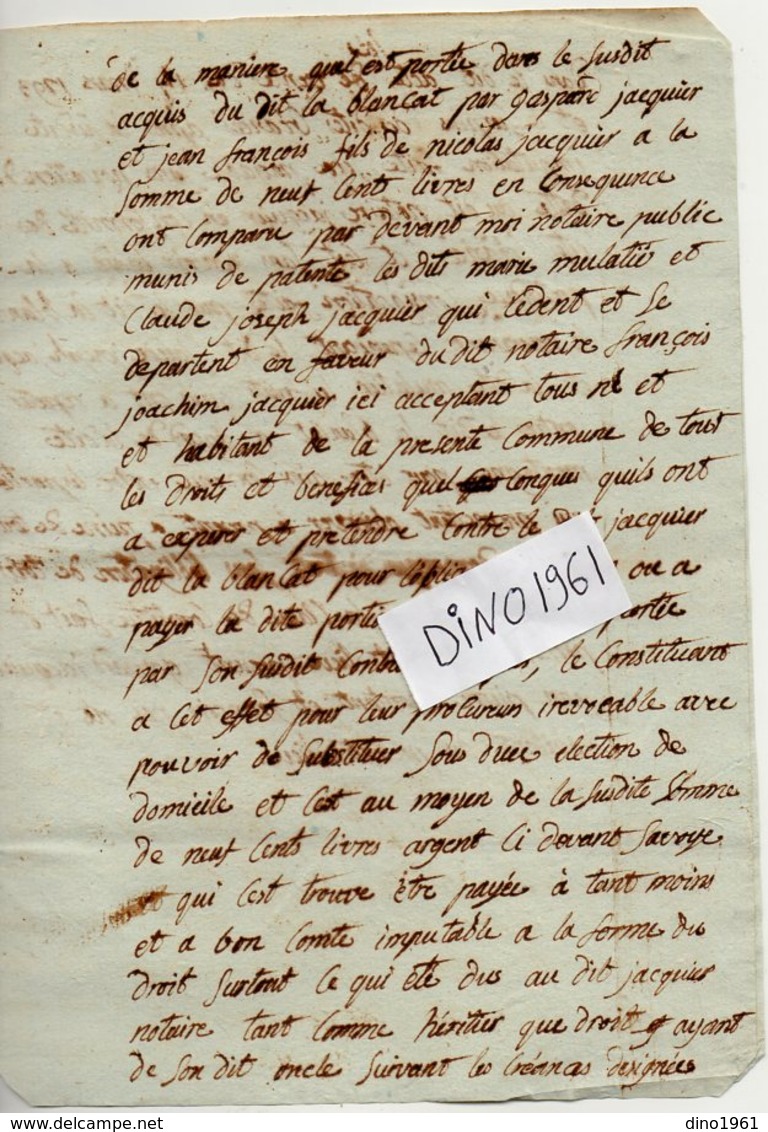 de la maniere quel est portée dans le susdit
acquis du dit la blancat par gaspard jacquier
et jean françois fils de nicolas jacquier a la
somme de neuf cent livres en consequence
ont comparu par devant moi notaire public
munis de patente les dits marie mulatié et
Claude joseph jacquier qui cedent et se
departent en faveur du dit notaire françois
joachim jacquier ici acceptant tous né et
et habitant de la presente Commune de tous
les droits et benefices quelconques quils ont
a experer et pretendre contre le jacquier
dit la blancat pour ou a
payer la dite
par son susdit le Constituant
a cet effet pour leur procureur irevocable avec
pouvoir de substituer sous due election de
domicile et cest au moyen de la susdite somme
de neuf cents livres argent ci devant Savoye
et qui cest trouve être payée à tant moins
et a bon comte imputable a la forme du
droit surtout ce qui ete dus au dit jacquier
notaire tant comme héritier que droit ayant
de son dit oncle suivant les créances designées
DINO1961
dino1961